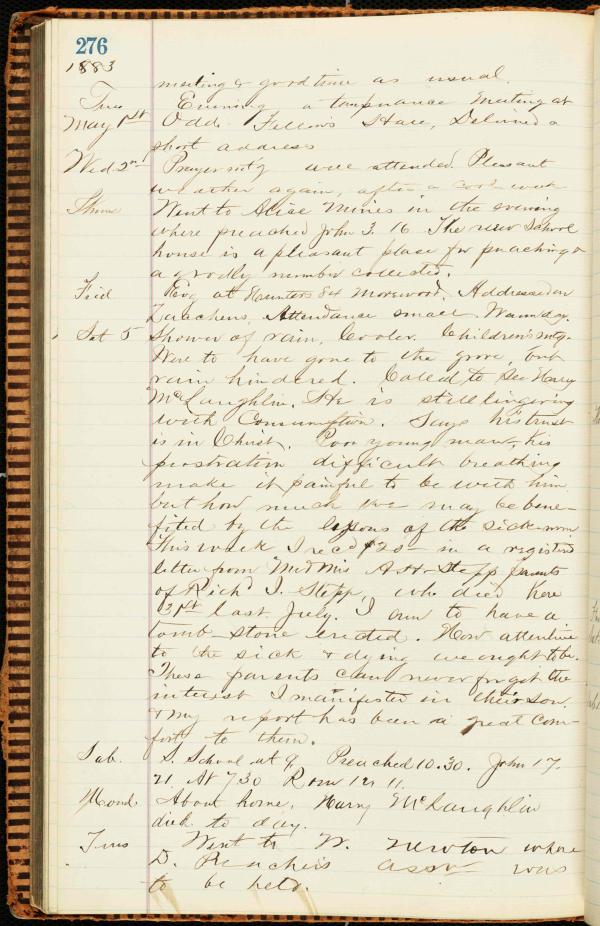 276
1883
meeting & good time as usual.
Tues Evening a temperance meeting at
May 1st Odd Fellows Hall, Delivered a
short address
Wed 2nd Prayer mt'g well attended Pleasant
weather again, after a cool week
Thurs Went to Mines in the evening
where preached John 3. 16 The new School
house is a pleasant place for preaching &
a goodly number collected.
Frid Evg at Hunters St Morewood. Addressed on
Teachers, Attendance small. Warm day.
Sat 5 Shower of rain, Cooler. Children's mtg.
Were to have gone to the grove, but
rain hindered. Called to see Harry
McLaughlin. He is still lingering
with Consumption. Says his trust
is in Christ. Poor young man, his
prostration difficult breathing
make it painful to be with him
but how much we may be bene-
fited by the lessons of the sick-room
This week I recd $20 - in a registered
letter from Mr & Mrs A. H. Stepp parents
of Richd I. Stepp, who died here
31st last July. I am to have a
tomb-stone erected. How attentive
to the sick & dying we ought to be.
These parents can never forget the
interest I manifested in their son.
& my report has been a great com-
fort to them.
Sab. S. School at 9. Preached 10.30. John 17.
21. At 7.30 Rom 12. 11.
Mond. About home, Harry McLaughlin
died to day.
Tues Went to W. Newton where
D. Preachers assn was
to be held.